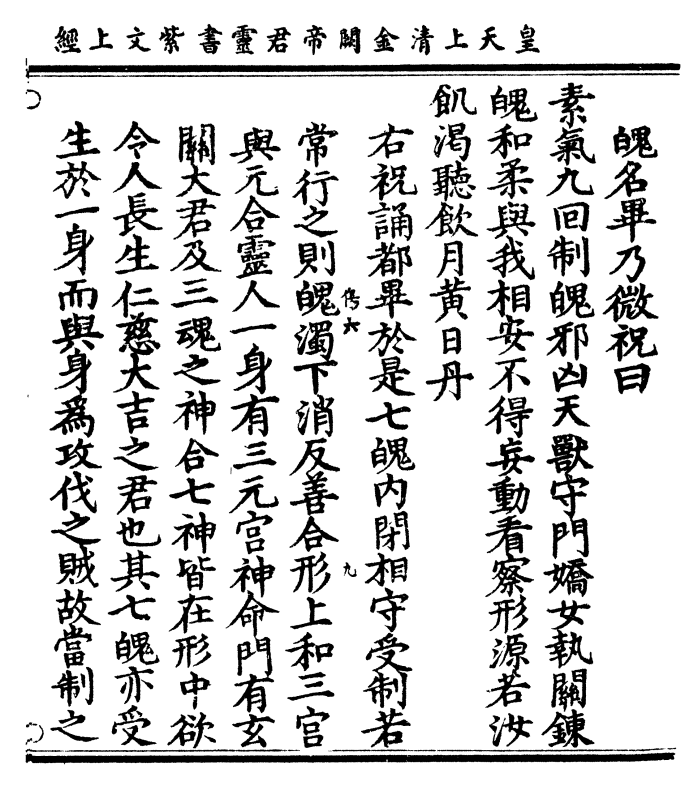 皇天上清金闕帝君靈書紫文上經
魄名畢乃微祝曰
素氣九回制魄邪凶天獸守門嬌女執關鍊
魄和柔與我相安不得妄動看察形源若汝
飢渴聽飲月黃日丹
右祝誦都畢於是七魄內閉相守受制若
傷六
九
常行之則魄濁下消反善合形上和三宮
與元合靈人一身有三元宮神命門有玄
關大君及三魂之神合七神皆在形中欲
令人長生仁慈大吉之君也其七魄亦受
生於一身而與身為攻伐之賊故當制之